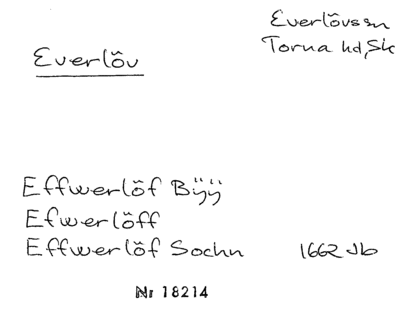 Everlöv
Everlövssn
Torna hd, Sk
Effwerlöf Bÿÿ
Efwerlöff
Effwerlöf Sochn 1662 Jb
Nr 18214